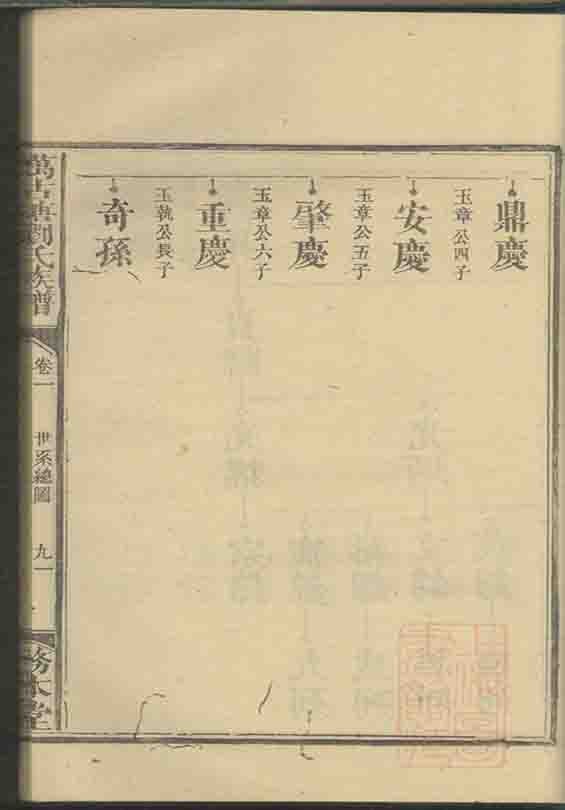 鼎慶
玉章公四子
安慶
玉章公五子
肇慶
玉章公六子
重慶
玉執公長子
奇孫
劉氏族譜
卷一
世系總圖
九一
務本堂